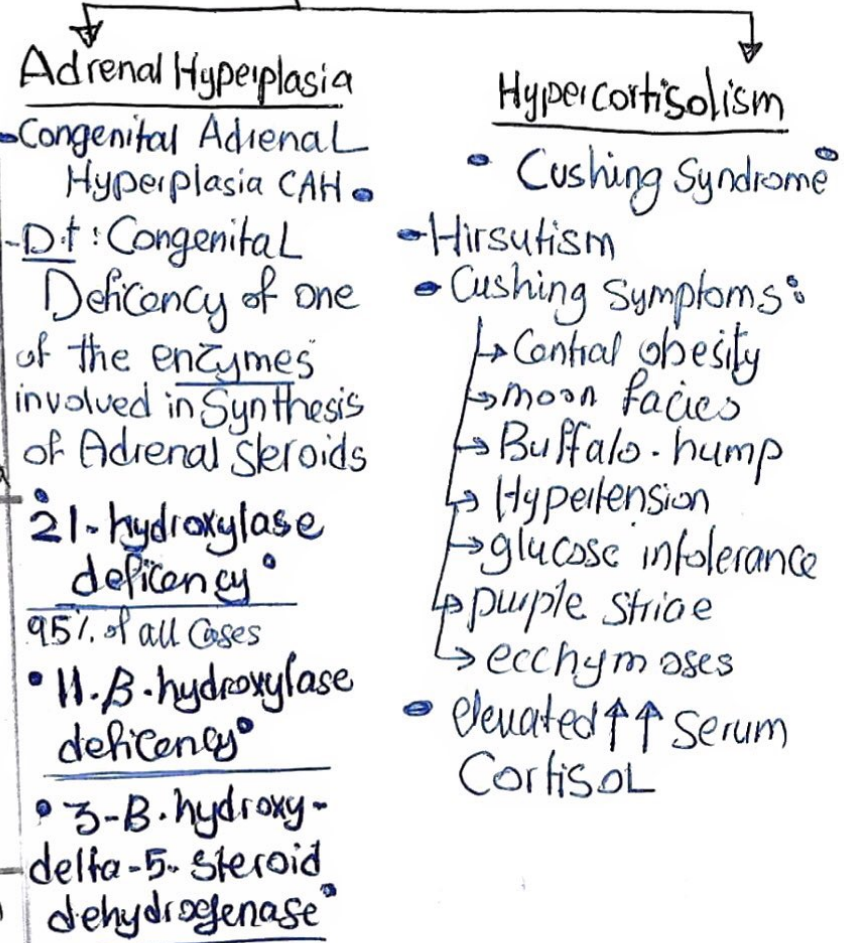 Adrenal Hyperplasia
- Congenital Adrenal
Hyperplasia CAH.
- D.t : Congenital
Deficency of one
of the enzymes
involved in Synthesis
of Adrenal Steroids
• 21-hydroxylase
deficency
95% of all Cases
• 11-B-hydroxylase
deficency
• 3-B-hydroxy-
delta-5-Steroid
dehydrogenase
Hypercortisolism
- Cushing Syndrome
- Hirsutism
- Cushing Symptoms:
→ Central obesity
→ moon facies
→ Buffalo-hump
→ Hypertension
→ glucose intolerance
→ purple striae
→ ecchymoses
- elevated ↑↑ serum
Cortisol